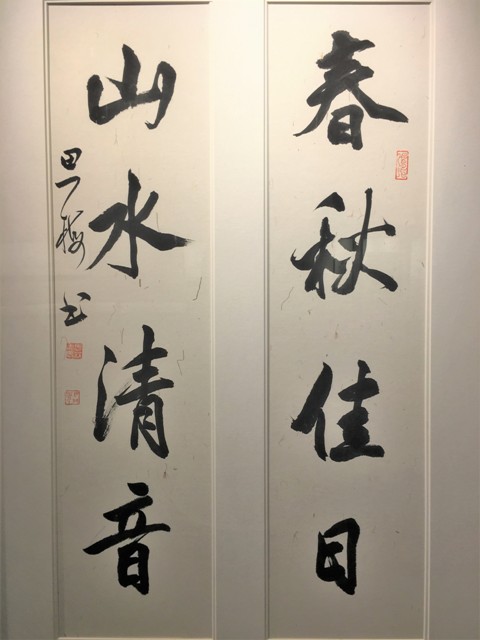 春秋佳日
山水清音